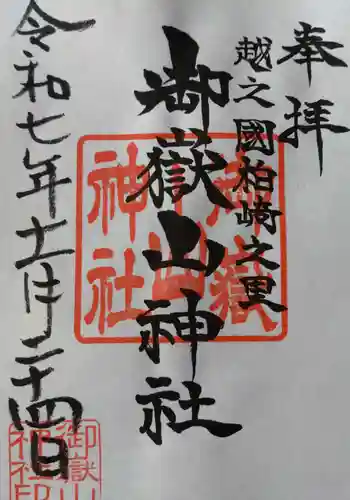 奉拝
越之國柏崎之里
御嶽山神社
令和七年十一月二十四日
御嶽山神社
御嶽山
神社印